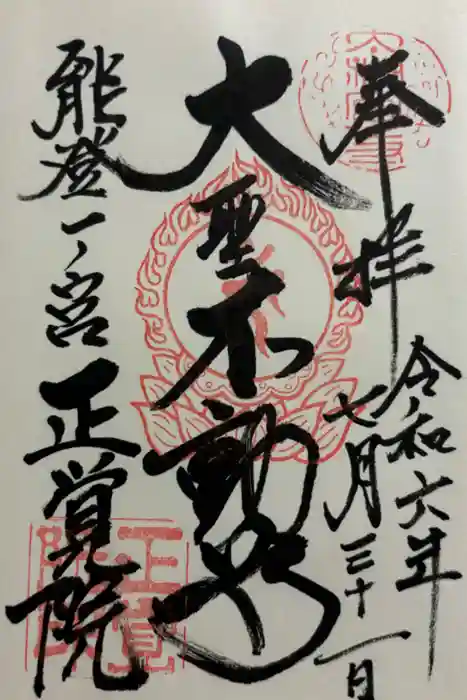 奉拝
令和六年
七月三十一日
大聖不動尊
能登一ノ宮
正覚院
正覚院